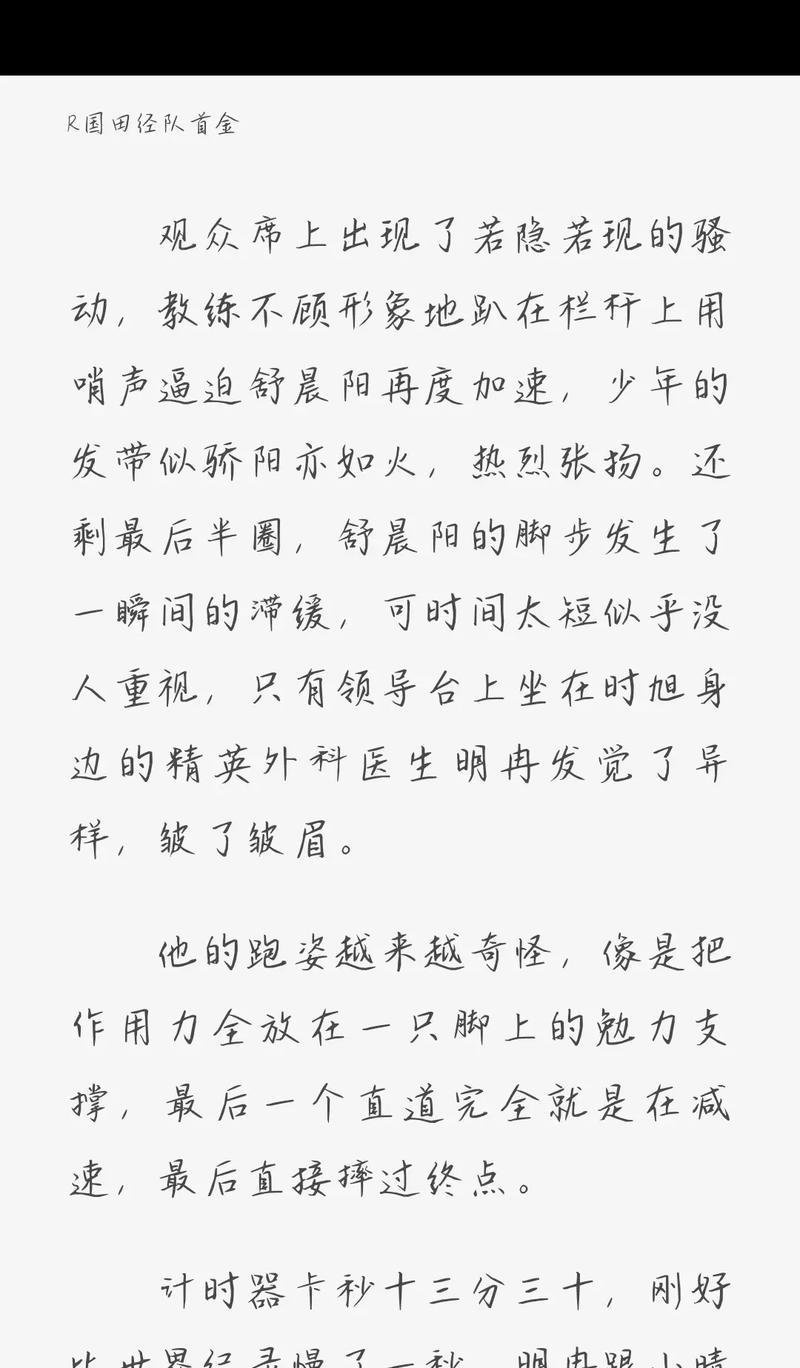 R国田径队首金
观众席上出现了若隐若现的骚
动，教练不顾形象地趴在栏杆上用
哨声逼迫舒晨阳再度加速，少年的
发带似骄阳亦如火，热烈张扬。还
剩最后半圈，舒晨阳的脚步发生了
一瞬间的滞缓，可时间太短似乎没
人重视，只有领导台上坐在时旭身
边的精英外科医生明冉发觉了异
样，皱了皱眉。
他的跑姿越来越奇怪，像是把
作用力全放在一只脚上的勉力支
撑，最后一个直道完全就是在减
速，最后直接摔过终点。
计时器卡秒十三分三十，刚好
比世界纪录慢了一秒，明冉跟小晴